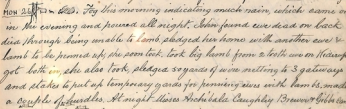 Mon 25th Do. Fog this morning indicating much rain, which came
in the evening and poured all night. John found ewe dead on back
died through being unable to lamb, sledged her home with another ewe &
lamb to be penned up, she soon took, took big lamb from 2 tooth ewe on
got both in, she also took, sledged 20 yards of wire netting to 3 gateways
and stakes to put up temporary yards for penning ewes with lambs, made
a couple of hurdles. At night Moses Archibald Caughley Brewer Gibbs